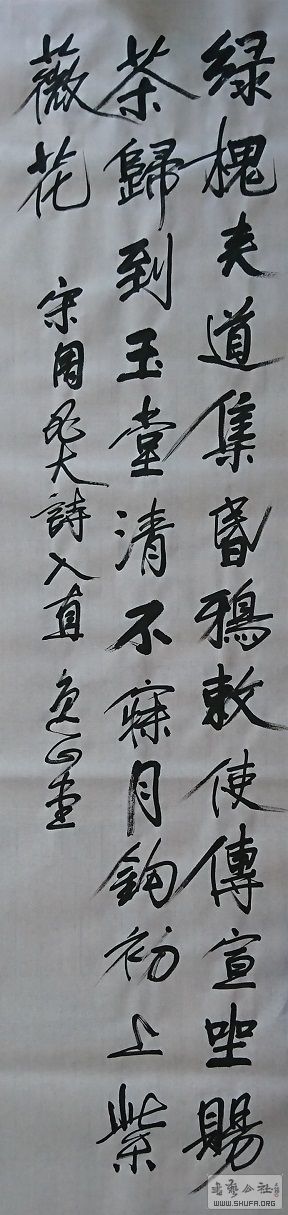 緑槐夾道集昏鴉敕使傳宣坐賜
茶歸到玉堂清不寐月鉤初上紫
薇花
宋周必大詩入直
书艺公社
WWW.SHUFA.ORG